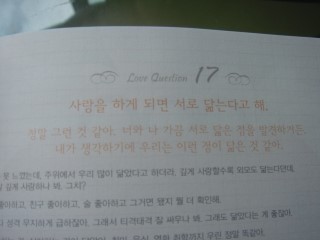 Love Question 17
사랑을 하게 되면 서로 닮는다고 해.
정말 그런 것 같아. 너와 나 가끔 서로 닮은 점을 발견하거든.
내가 생각하기에 우리는 이런 점이 닮은 것 같아.
느꼈는데, 주위에서 우리 많이 닮았다고 하더라. 길게 사랑할수록 외모도 닮는다던데,
길게 사랑하나 봐. 그치?
좋아하고, 친구 좋아하고, 술 좋아하고 그거면 됐지 뭘 더 확인해.
성격 무지하게 급하잖아. 그래서 티격태격 잘 싸우나 봐. 그래도 닮았다는 게 좋잖아.